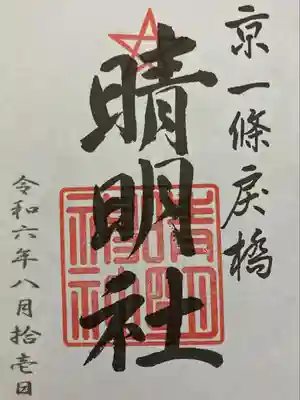 京一條戻橋
晴明社
令和六年八月拾壱日
晴明
神社